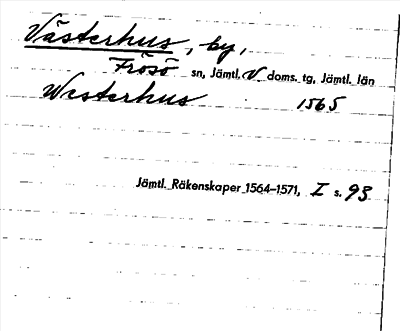 Västerhus, by,
Frösö sn, Jämtl. V doms. tg, Jämtl. län
Westerhus 1565
Jämtl. Räkenskaper 1564-1571, I s. 93